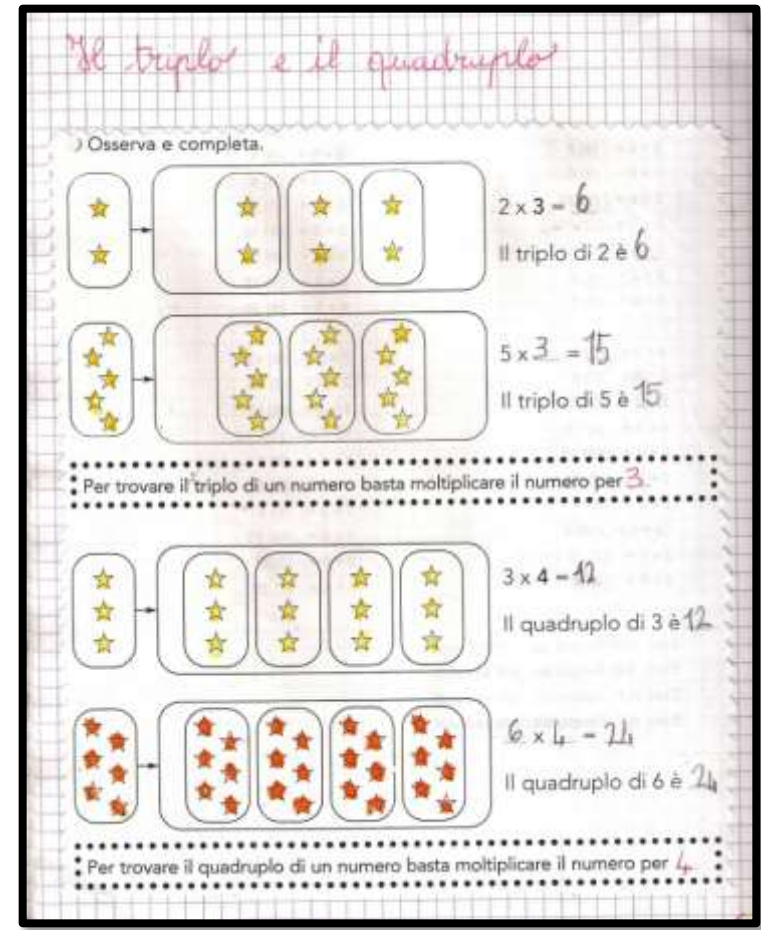 Il triplo e il quadruplo
Osserva e completa.
2 x 3 = 6
Il triplo di 2 è 6
5 x 3 = 15
Il triplo di 5 è 15
Per trovare il triplo di un numero basta moltiplicare il numero per 3
3 x 4 = 12
Il quadruplo di 3 è 12
6 x 4 = 24
Il quadruplo di 6 è 24
Per trovare il quadruplo di un numero basta moltiplicare il numero per 4